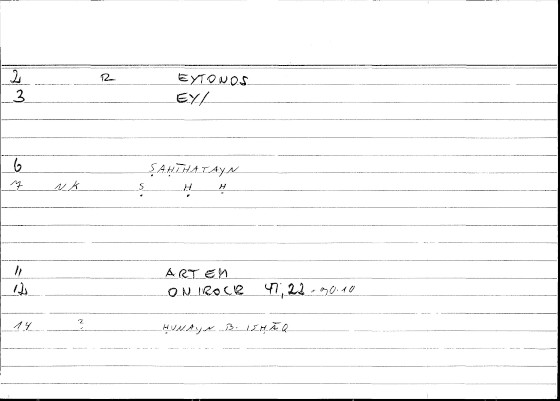 2 R EYTONOS
3 EY/
6 ṢAḤĪḤATAYN
7 N/K Ṣ Ḥ Ḥ
11 ARTEM
12 ONIROCR 47,22 - 90.10
14 ? ḤUNAYN B. ISḤĀQ